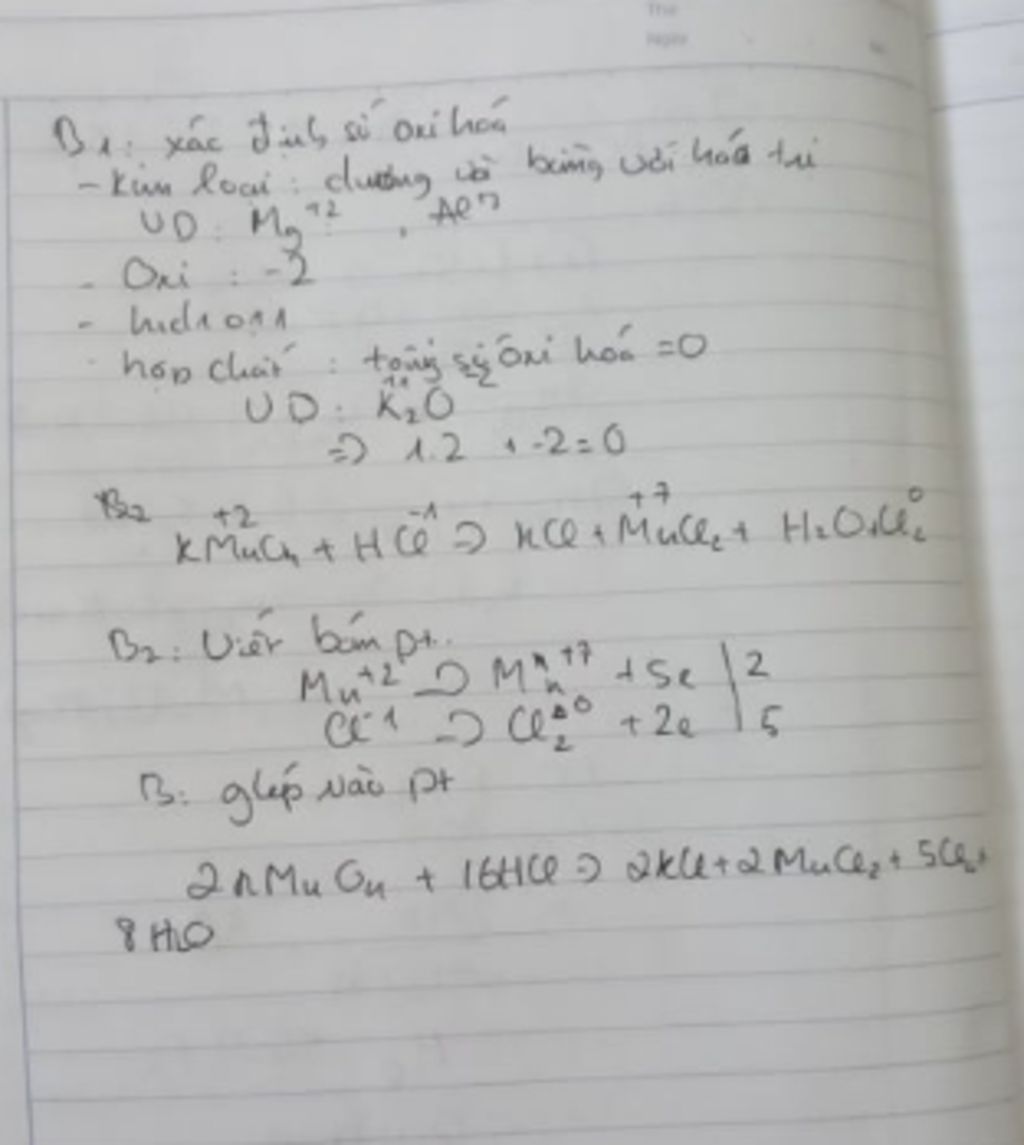 Thứ
Ngày
B1: xác định số oxi hoá
- Kim loại : dương và bằng với hoá trị
VD : Mg⁺² , Al
- Oxi : -2
- hidro
hợp chất : tổng số oxi hoá = 0
VD : K₂O
=> 1.2 + -2 = 0
B2
+2 -1 +7 0
KMnO₄ + HCl => KCl + MnCl₂ + H₂O + Cl₂
B2: Viết bán pt.
Mn⁺² => Mn⁺⁷ + 5e | 2
Cl⁻¹ => Cl₂⁰ + 2e | 5
B: ghép vào pt
2KMnO₄ + 16HCl => 2KCl + 2MnCl₂ + 5Cl₂ +
8H₂O